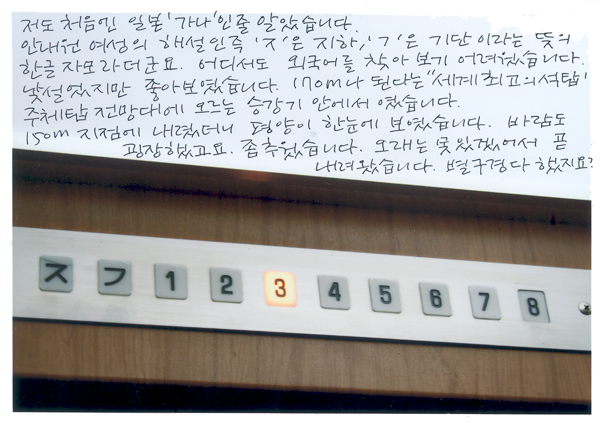 저도 처음엔 일본 '가나'인줄 알았습니다.
안내원 여성의 해설인즉 'ㅈ'은 지하, 'ㄱ'은 기단이라는 뜻의
한글 자모라더군요. 어디서도 외국어를 찾아 보기 어려웠습니다.
낯설었지만 좋아보였습니다. 170m나 된다는 "세계최고의석탑"
주체탑 전망대에 오르는 승강기 안에서 였습니다.
150m 지점에 내렸더니 평양이 한눈에 보였습니다. 바람도
굉장했고요. 좀 추웠습니다. 오래는 못있겠어서 곧
내려왔습니다. 별구경다 했지요?
ㅈ ㄱ 1 2 3 4 5 6 7 8